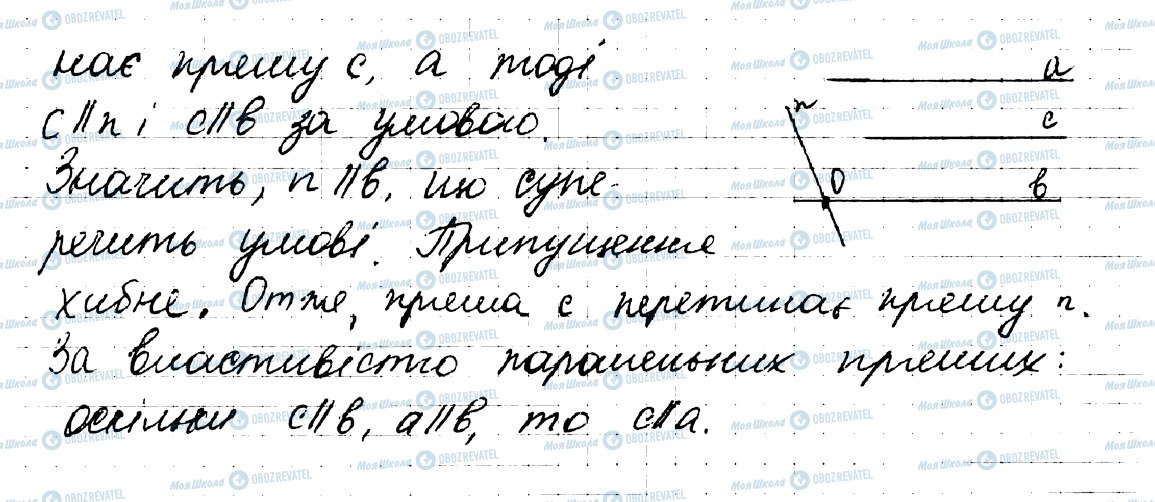 нає пряму c, а тоді
c || n і c || b за умовою.
Значить, n || b, що супе-
речить умові. Припущення
хибне. Отже, пряма c перетинає пряму n.
За властивістю паралельних прямих:
оскільки c || b, a || b, то c || a.
a
n
c
O
b